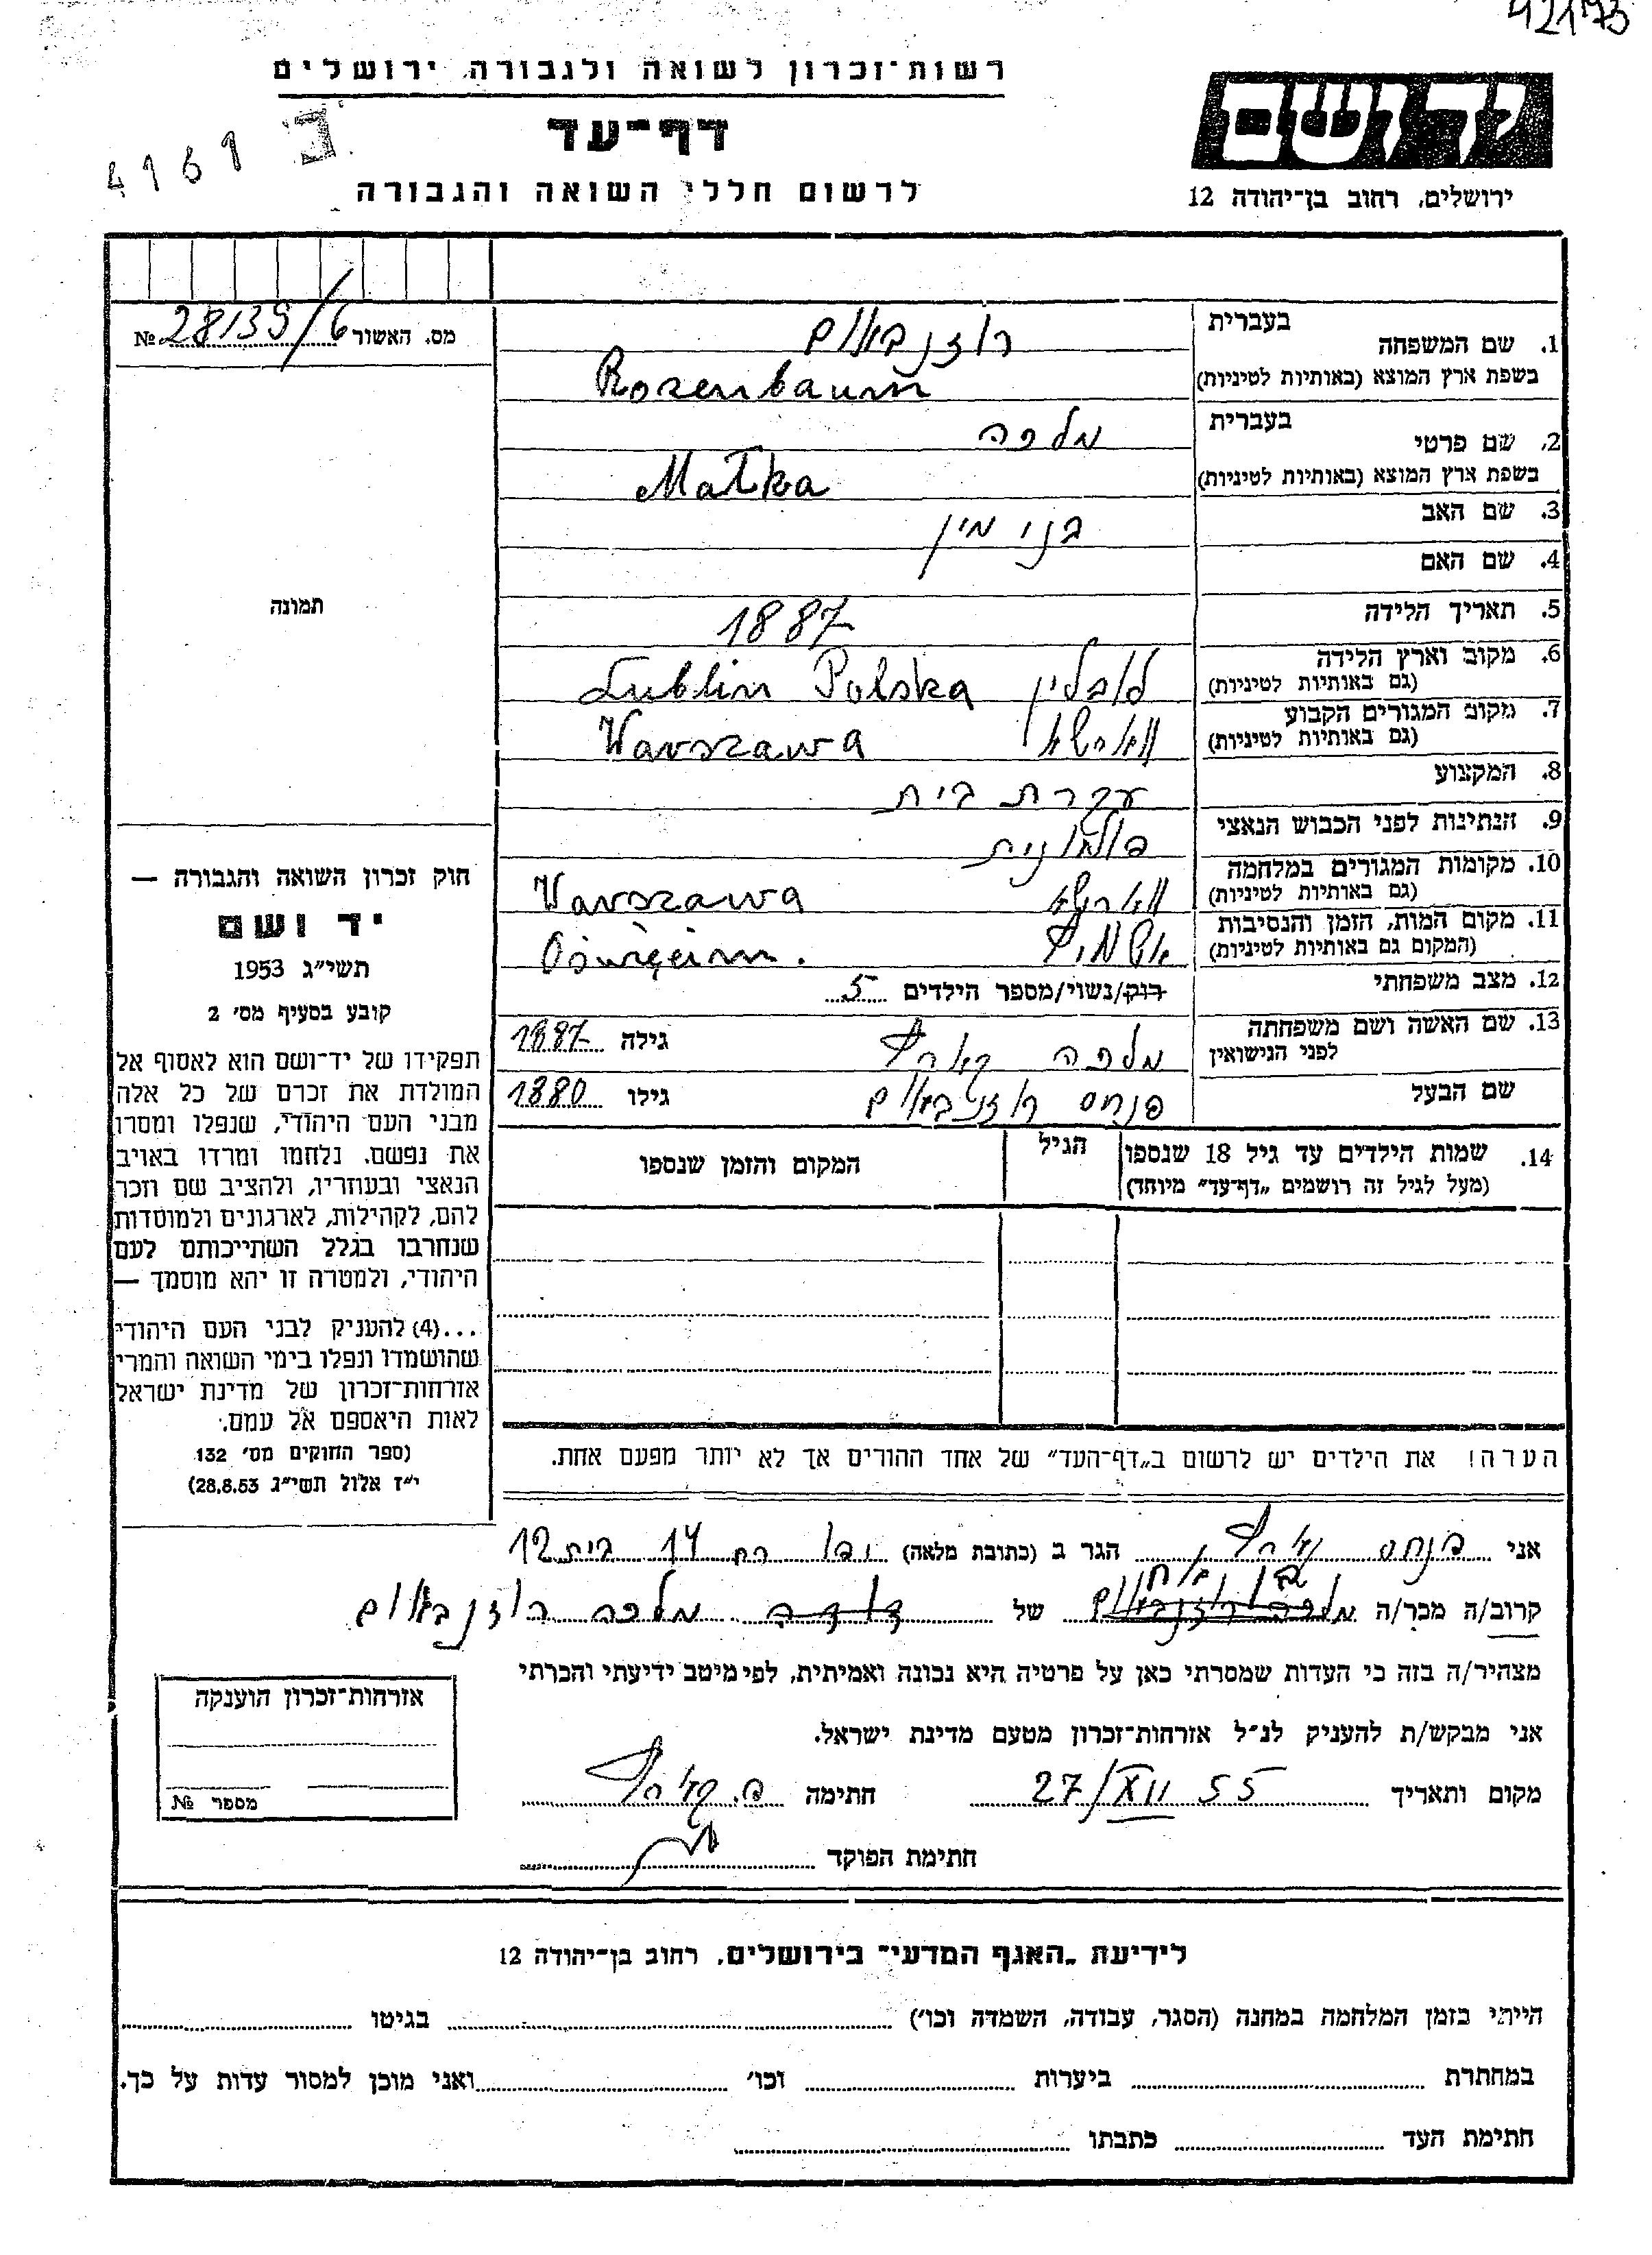 42173
רשות־זכרון לשואה ולגבורה, ירושלים
דף־עד
לרשום חללי השואה והגבורה
4161 ב
יד ושם
ירושלים, רחוב בן־יהודה 12
מס. האשור 28139/6 №
1. שם המשפחה
בעברית
רוזנבאום
בשפת ארץ המוצא (באותיות לטיניות)
Rozenbaum
2. שם פרטי
בעברית
מלכה
בשפת ארץ המוצא (באותיות לטיניות)
Małka
3. שם האב
בנימין
4. שם האם
5. תאריך הלידה
1887
6. מקום וארץ הלידה
(גם באותיות לטיניות)
לובלין Lublin Polska
7. מקום המגורים הקבוע
(גם באותיות לטיניות)
ווארשא Warszawa
8. המקצוע
עקרת בית
9. הנתינות לפני הכבוש הנאצי
פולונית
10. מקומות המגורים במלחמה
(גם באותיות לטיניות)
ווארשא Warszawa
11. מקום המות, הזמן והנסיבות
(המקום גם באותיות לטיניות)
Oświęcim.
12. מצב משפחתי
רוק/נשוי/מספר הילדים 5
13. שם האשה ושם משפחתה
לפני הנישואין
מלכה
גילה 1887
שם הבעל
פנחס רוזנבאום
גילו 1880
14. שמות הילדים עד גיל 18 שנספו
(מעל לגיל זה רושמים „דף־עד״ מיוחד)
הגיל
המקום והזמן שנספו
תמונה
חוק זכרון השואה והגבורה —
יד ושם
תשי״ג 1953
קובע בסעיף מס׳ 2
תפקידו של יד־ושם הוא לאסוף אל
המולדת את זכרם של כל אלה
מבני העם היהודי, שנפלו ומסרו
את נפשם, נלחמו ומרדו באויב
הנאצי ובעוזריו, ולהציב שם וזכר
להם, לקהילות, לארגונים ולמוסדות
שנחרבו בגלל השתייכותם לעם
היהודי, ולמטרה זו יהא מוסמך —
...(4) להעניק לבני העם היהודי
שהושמדו ונפלו בימי השואה והמרי
אזרחות־זכרון של מדינת ישראל
לאות היאספם אל עמם.
(ספר החוקים מס׳ 132
י״ז אלול תשי״ג 28.8.53)
הערה! את הילדים יש לרשום ב„דף־העד״ של אחד ההורים אך לא יותר מפעם אחת.
אני פנחס הגר ב (כתובת מלאה) יפו רח 14 בית 12
קרוב/ה מכר/ה בן אח של דודה מלכה רוזנבאום
מצהיר/ה בזה כי העדות שמסרתי כאן על פרטיה היא נכונה ואמיתית, לפי מיטב ידיעתי והכרתי
אני מבקש/ת להעניק לנ״ל אזרחות־זכרון מטעם מדינת ישראל.
מקום ותאריך 27/XII 55 חתימה
חתימת הפוקד
אזרחות־זכרון הוענקה
מספר №
לידיעת „האגף המדעי״ בירושלים, רחוב בן־יהודה 12
הייתי בזמן המלחמה במחנה (הסגר, עבודה, השמדה וכו׳) בגיטו
במחתרת ביערות וכו׳ ואני מוכן למסור עדות על כך.
חתימת העד כתבתו